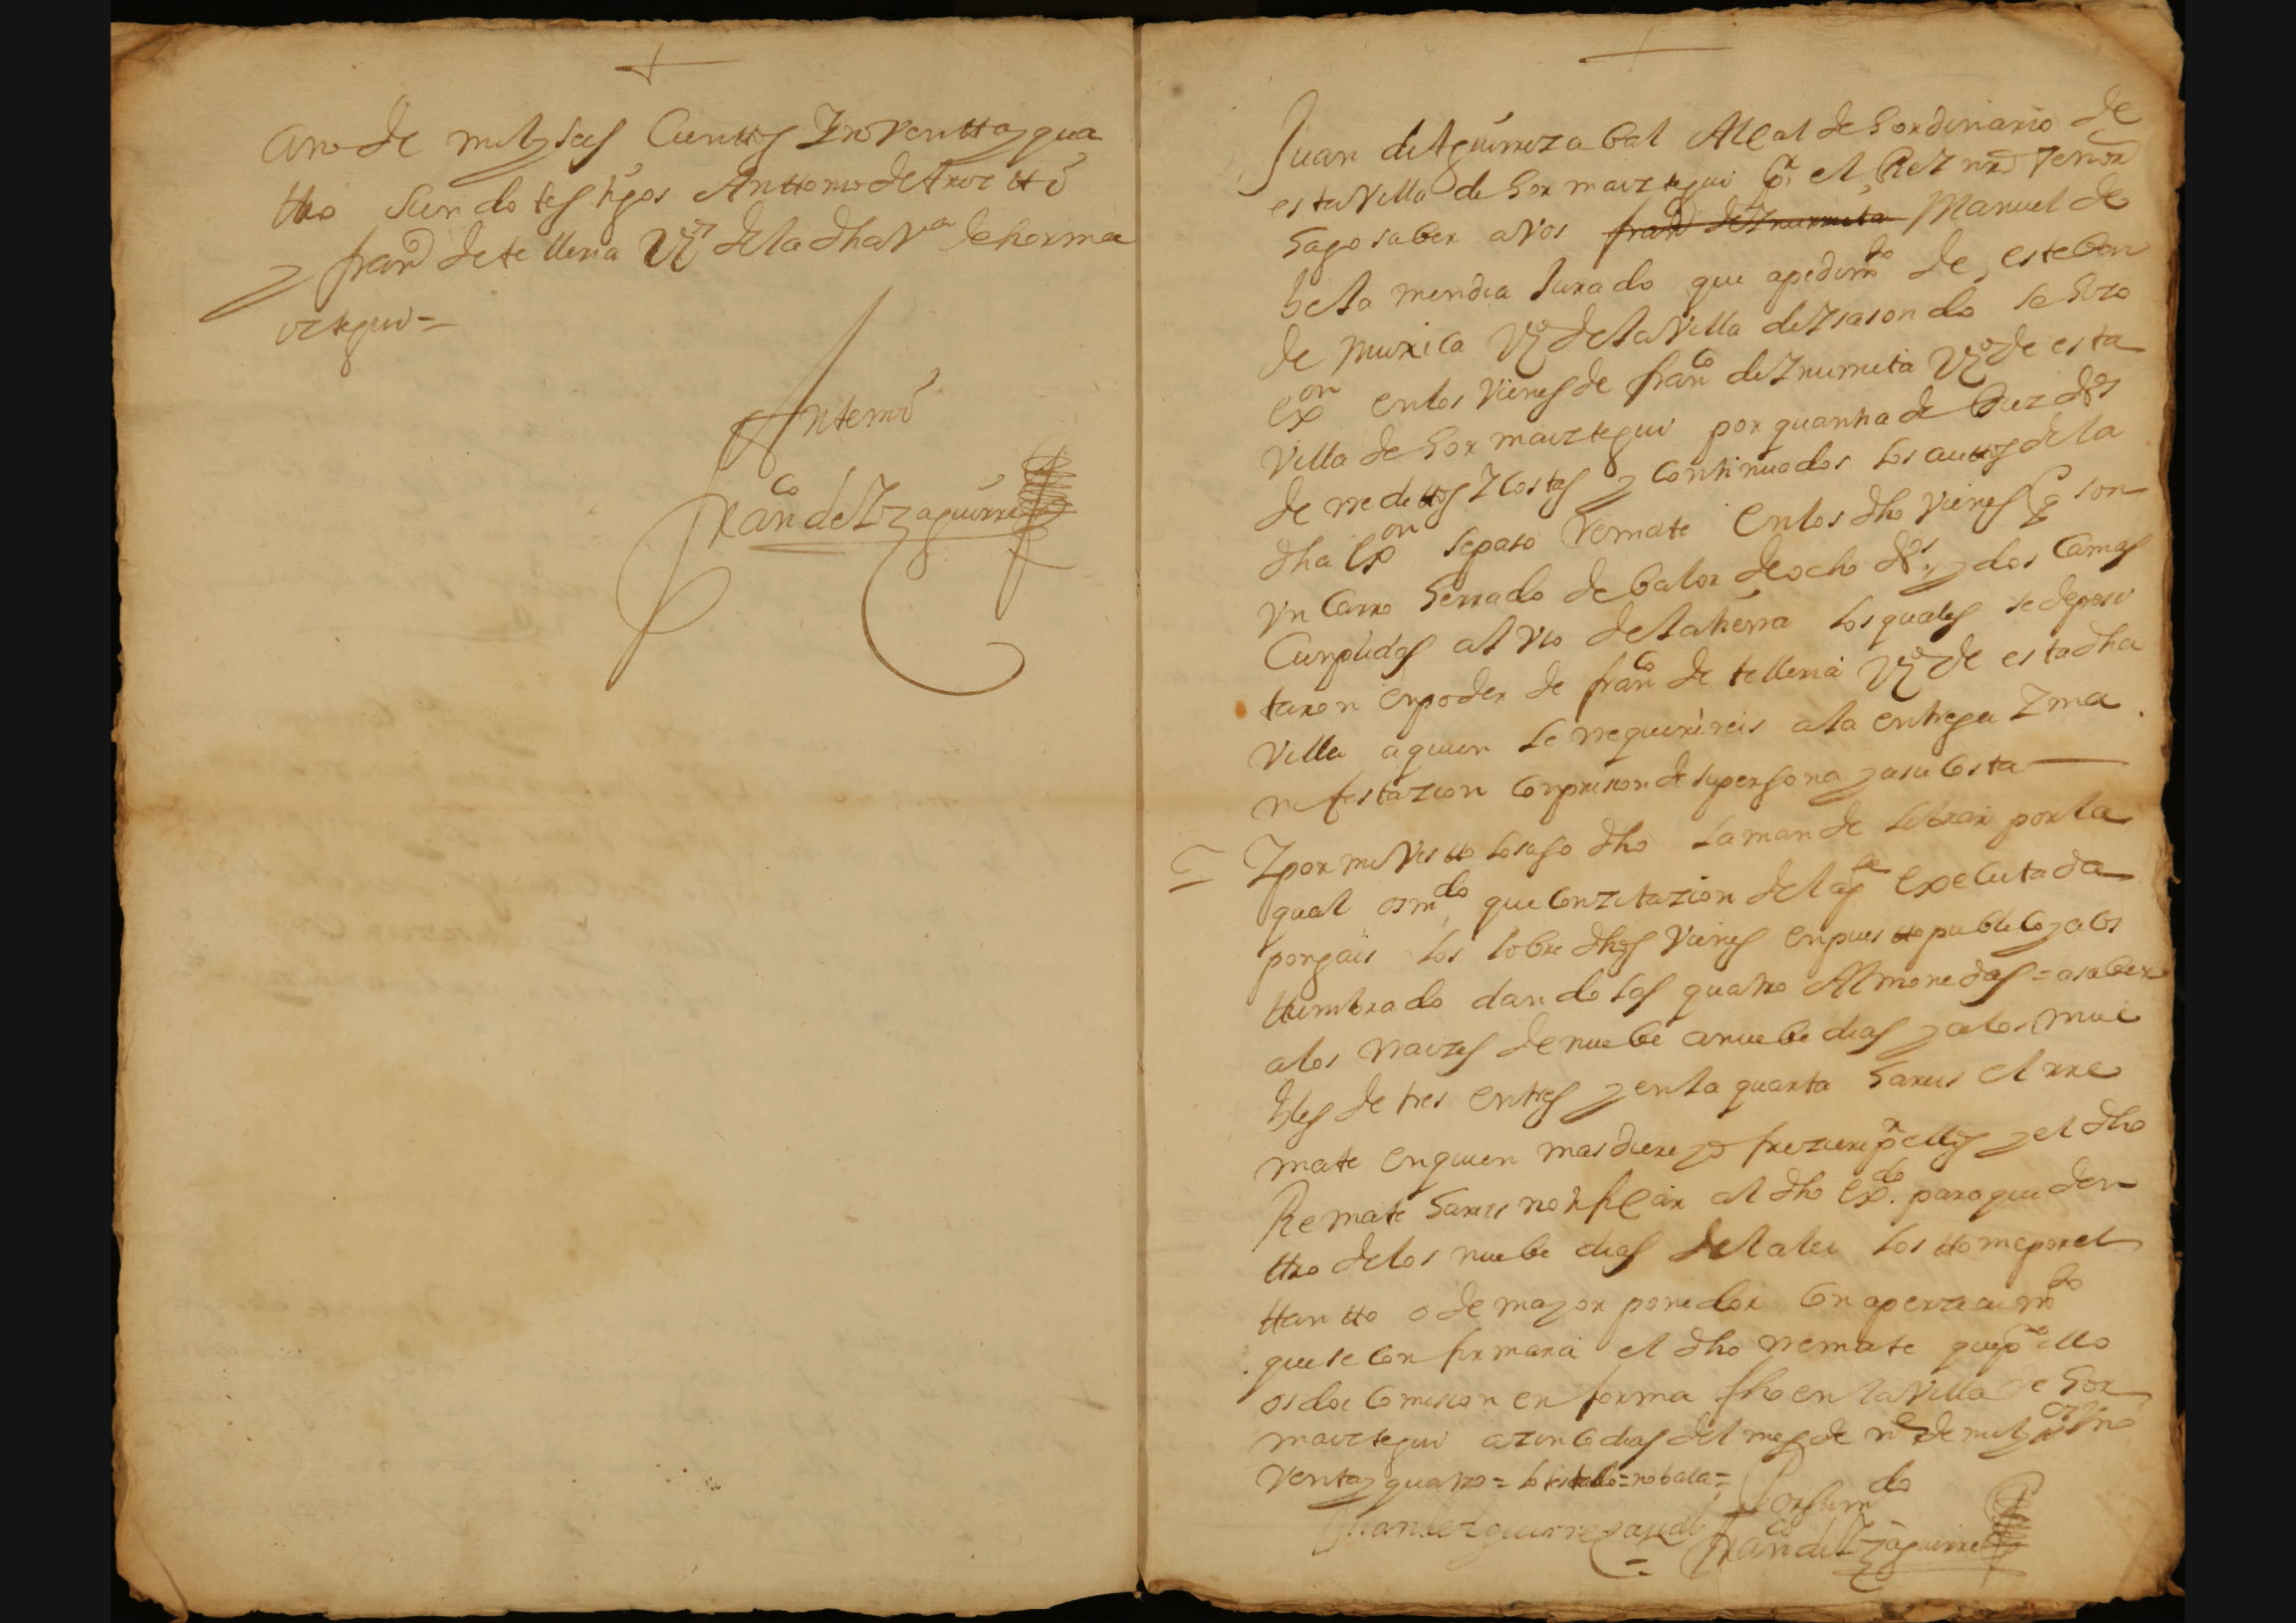 ano de mil y seis Cienttos y noventta y qua
ttro siendo testigos Anttonio de Aroztti
y fran.co de telleria Vz.s de la dha Va de horma
iztegui =
Antemi
Fran.co de Yzaguirre
Juan de Aguirrezabal Alcalde hordinario de
esta Villa de hormaiztegui pr el Rei nro señor
hago saber a vos fran.co de Ynurrieta Manuel de
beltamendia Jurado que a pedimto de esteban
de muxica Vzo de la Villa de Ysasondo se hizo
exon en los Vienes de fran.co de Ynurrieta Vzo de esta
Villa de hormaiztegui por quantia de diez ds
de rredittos y costas y continuados los auttos de la
dha exon se paso Remate en los dhos Vienes q son
Vn Carro herrado de balor de ocho ds y dos Camas
Cunplidas al vso de la tierra los quales se deposi
taron en poder de fran.co de telleria Vzo de esta dha
Villa a quien le rrequirireis a la entrega y ma
nifestazion con prision de su persona y a su costa
Y por mi Vistto lo suso dho la mande librar por la
qual os mdo que con zitazion de la pte executada
pongais los sobre dhos Vienes en puestto publico y acos
ttumbrado dando las quatro Almonedas = a saber
a los rraizes de nuebe a nuebe dias y a los mue
bles de tres en tres y en la quarta hareis el rre
mate en quien mas diere y ofreziere pr ellos y el dho
Remate hareis notificar al dho exdo para que den
ttro de los nuebe dias de la lei los ttome por el
ttantto o de mayor ponedor con aperzeuimto
que se confirmara el dho rremate que pa ello
os doi comision en forma fho en la Villa de hor
maiztegui a zinco dias del mes de re de mil y seisos no
venta y quatro = lo testado = no bala =
Juan de Aguirrezaual
Por su mdo
Fran.co de Yzaguirre